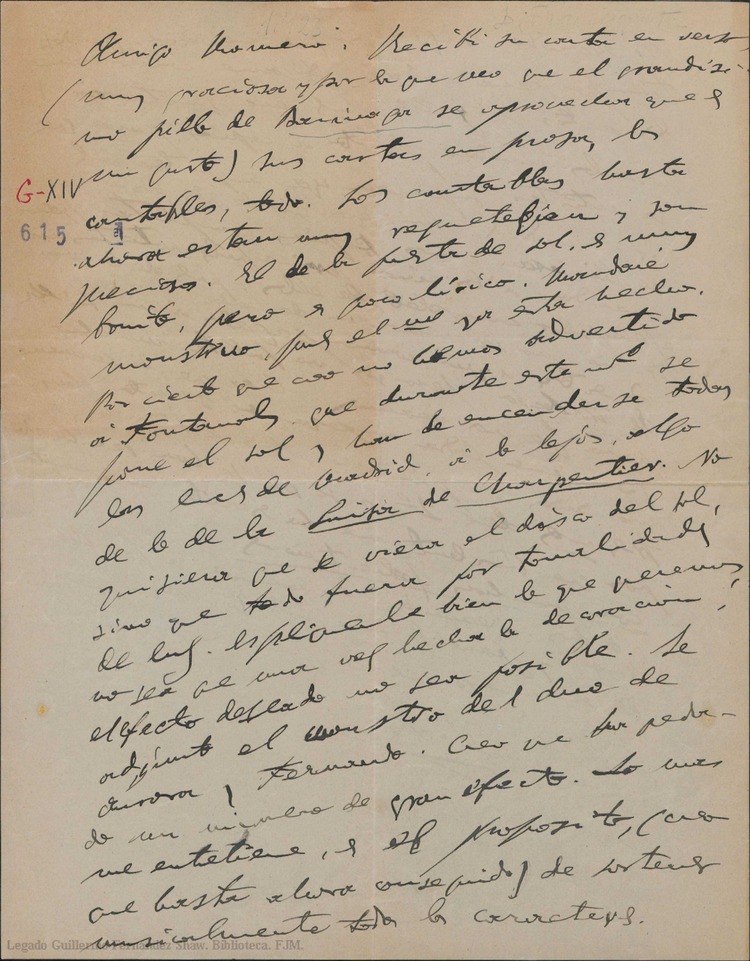 Amigo Romero: Recibí su carta en verso,
(muy graciosa y por la que veo que el grandísi-
mo pillo de Barinaga se aprovecha que es
un gusto) sus cartas en prosa, los
G-XIV
cantables, todo. Los cantables hasta
615
ahora estan muy requetebien y son
preciosos. El de la puesta de sol, es muy
bonito, pero es poco lírico. Mandaré
monstruo, pues el no ya esta hecho.
Por cierto que creo no hemos advertido
a Fontanals que durante este nº se
pone el sol y han de encenderse todas
las luces de Madrid, a lo lejos, algo
de lo de la Luisa de Charpentier. No
quisiera que se viera el disco del sol,
sino que todo fuera por tonalidades
de luz. espliquele bien lo que queremos,
no sea que una vez hecha la decoración,
el efecto deseado no sea posible. Le
adjunto el monstruo del duo de
Aurora y Fernando. Creo que ha queda-
do un numero de gran efecto. Lo mas
me entretiene, es el proposito, (creo
que hasta ahora conseguido) de sostener
musicalmente todos los caracteres.
Legado Guillermo Fernández Shaw. Biblioteca. FJM.